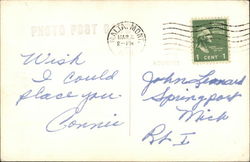 PHOTO POST
MAR
2 - PM
1 CENT 1
Wish
I could
place you.
Connie
John Leonard
Springport
Mich
Rt I